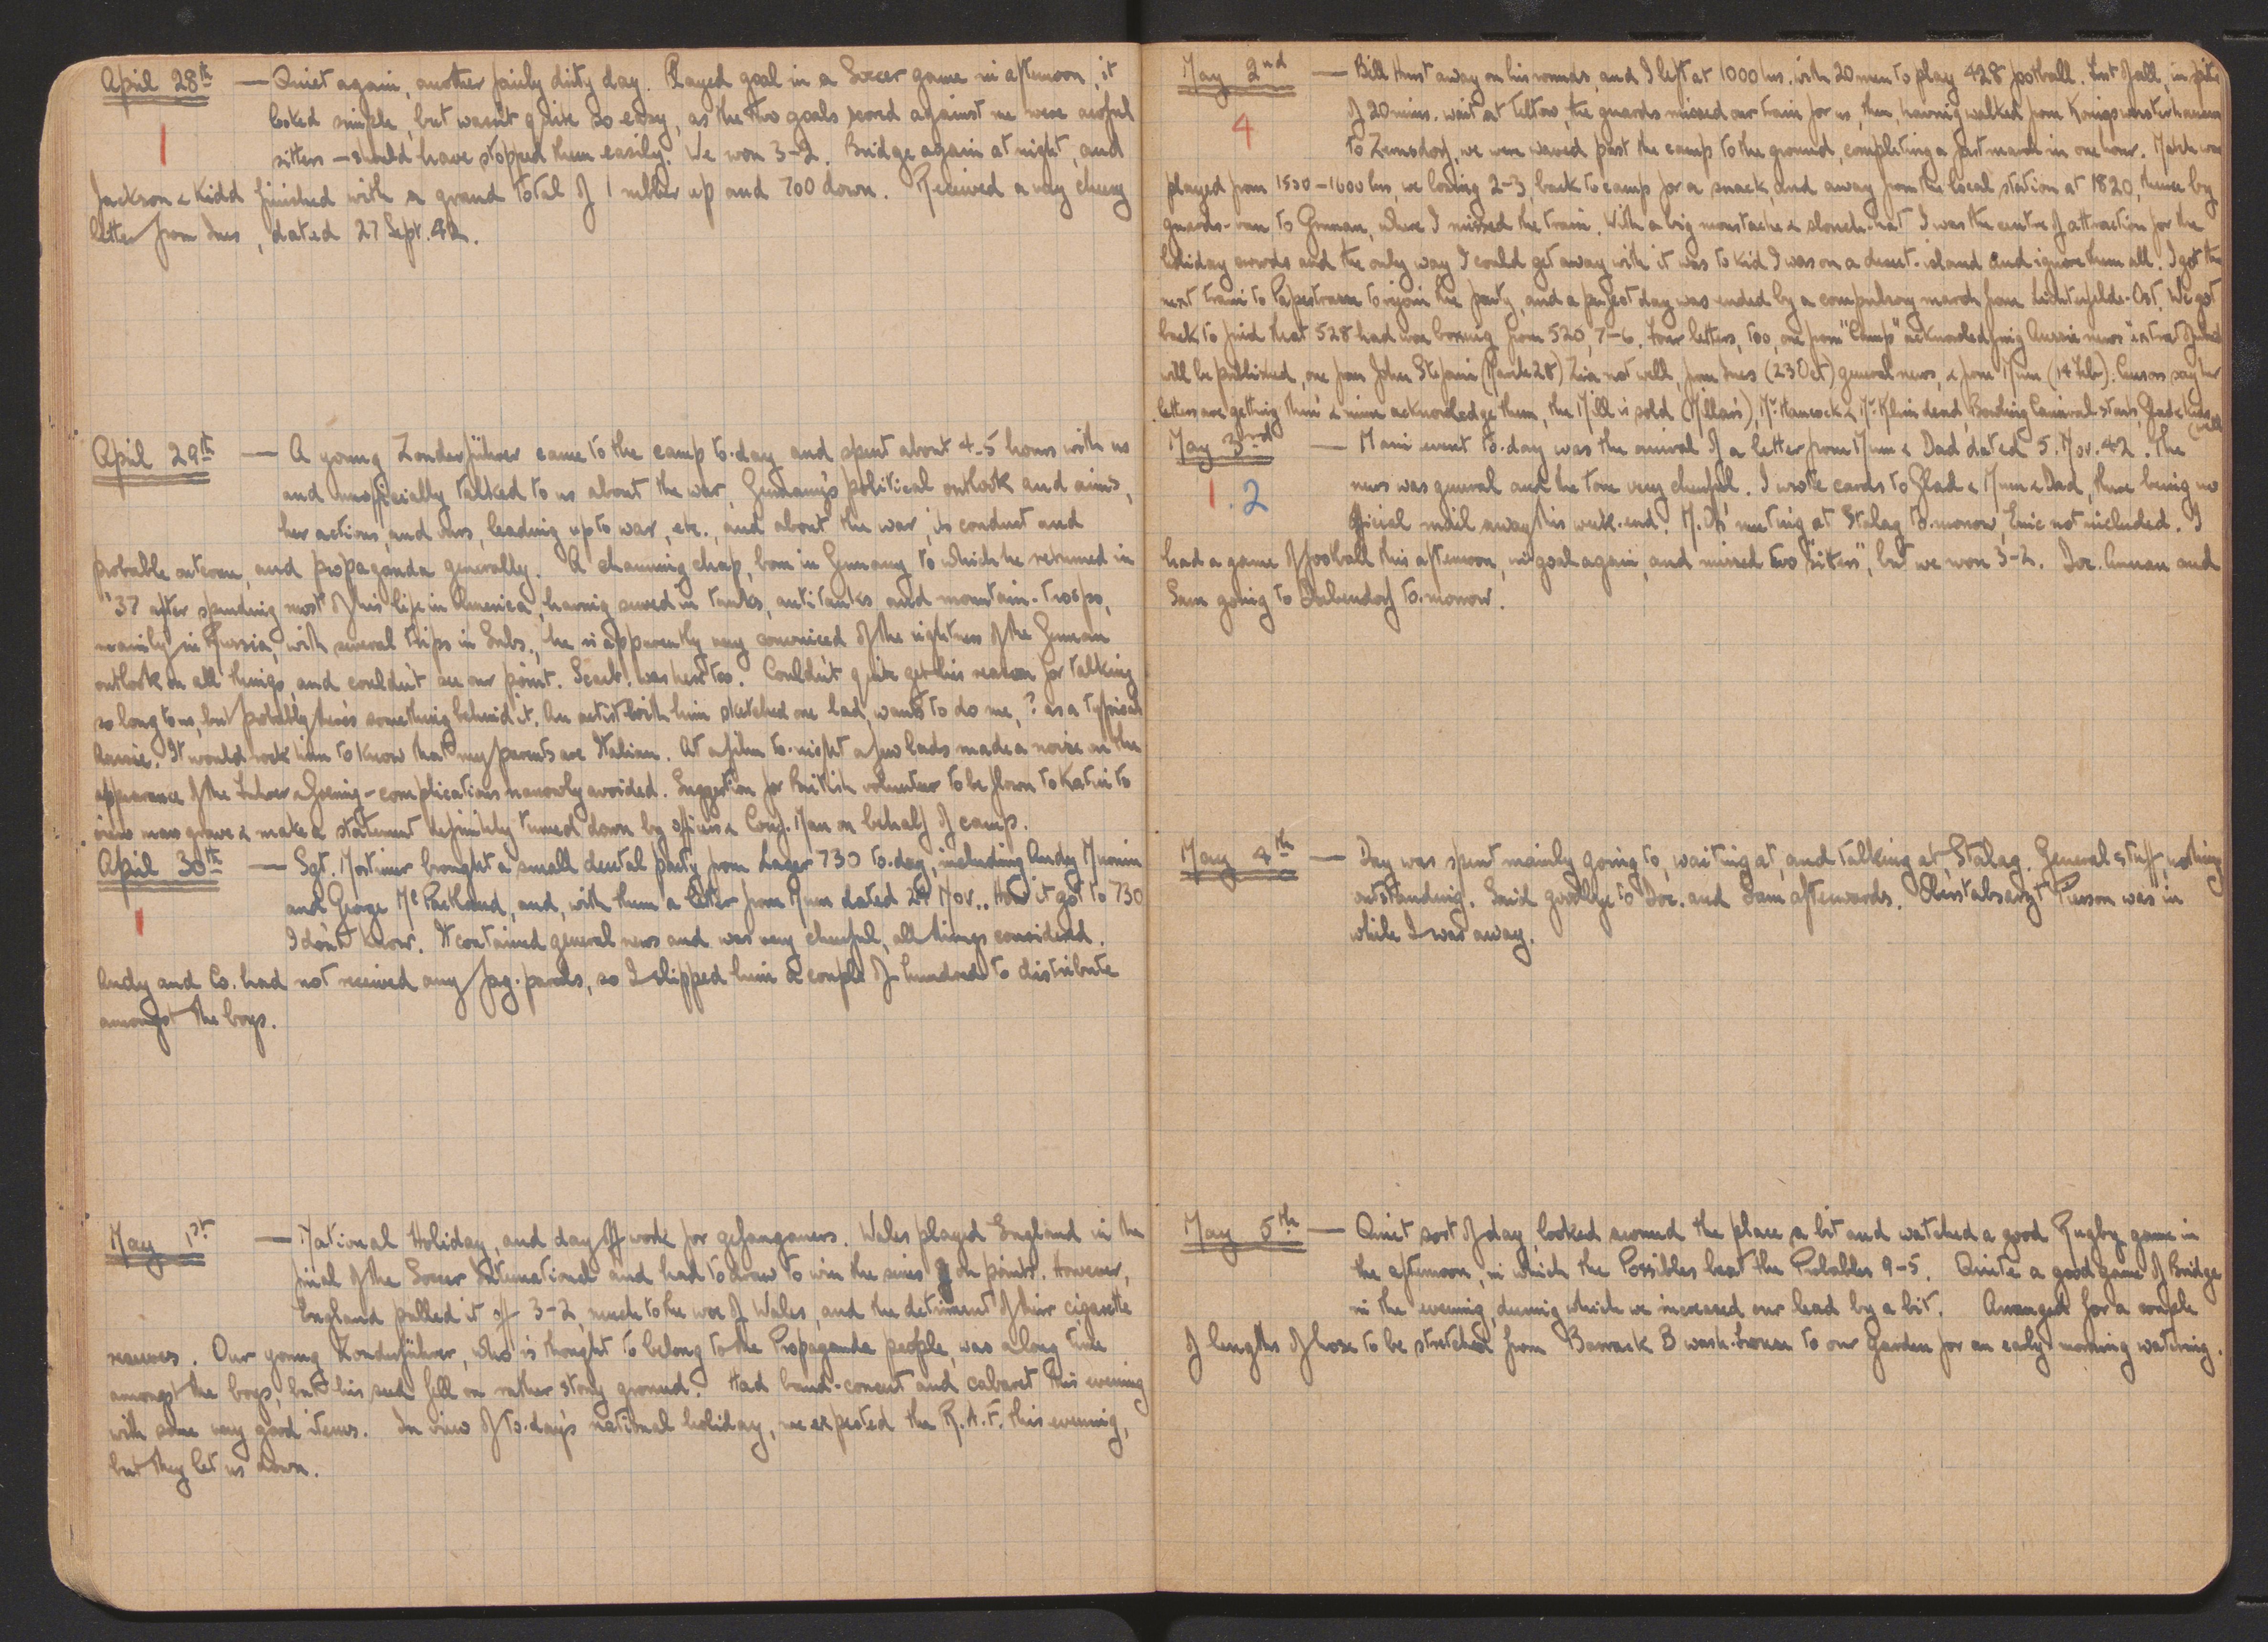 April 28th — Quiet again, another fairly dirty day. Played goal in a Soccer game in afternoon, it
looked simple, but wasn't quite so easy, as the two goals scored against me were awful
1 sitters — should have stopped them easily. We won 3-2. Bridge again at night, and
Jackson & Kidd finished with a grand total of 1 rubber up and 700 down. Received a very cheery
letter from Ines, dated 27 Sept. 42.
April 29th — A young Zonderführer came to the camp to-day and spent about 4-5 hours with us
and unofficially talked to us about the war, Germany's political outlook and aims,
her actions, and ours, leading up to war, etc., and about the war, its conduct and
probable outcome, and propaganda generally. A charming chap, born in Germany to which he returned in
'37 after spending most of his life in America, having served in tanks, anti-tanks and mountain-troops,
mainly in Russia, with several trips in Subs., he is apparently very convinced of the rightness of the German
outlook on all things, and couldn't see our point. was here too. Couldn't quite get his reason for talking
so long to us, but probably there's something behind it. An artist with him sketched one lad, wants to do me, ? as a typical
Aussie. It would rock him to know that my parents are Italian. At a film to-night a few lads made a noise on the
appearance of the Fuhrer & Goering - complications narrowly avoided. Suggestion for British volunteer to be flown to Katin to
view mass grave & make a statement definitely turned down by officers & Conf. Man on behalf of camp.
April 30th — Sgt. Mortimer brought a small dental party from Lager 730 to-day, including Andy
1 and George McPartland, and, with them a letter from Mum dated 24 Nov.. How it got to 730
I don't know. It contained general news and was very cheerful, all things considered.
Andy and Co. had not received any fag-parcels, so I slipped him a couple of hundred to distribute
amongst the boys.
May 1st — National Holiday, and day off work for gefanganers. Wales played England in the
final of the Soccer International and had to draw to win the series on points. However,
England pulled it off 3-2, much to the woe of Wales, and the detriment of their cigarette
reserves. Our young Zonderführer, who is thought to belong to the Propaganda people, was a long time
amongst the boys, but his seed fell on rather stony ground. Had band-concert and cabaret this evening
with some very good items. In view of to-day's national holiday, we expected the R.A.F. this evening,
but they let us down.
May 2nd — Bill Hurst away on his rounds, and I left at 1000 hrs. with 20 men to play 428 football. First of all, in spite
4 of 20 mins. wait at Teltow, the guards missed our train for us, then, having walked from Konigswusterhausen
to Zernsdorf, we were waved past the camp to the ground, completing a fast march in one hour. Match was
played from 1500-1600 hrs, we losing 2-3, back to camp for a snack, and away from the local station at 1820, thence by
guards-van to Grunau, where I missed the train. With a big moustache & slouch-hat I was the centre of attraction for the
holiday crowds and the only way I could get away with it was to kid I was on a desert-island and ignore them all. I got the
next train to Papestrasse to rejoin the party, and a perfect day was ended by a compulsory march from Lichterfelde-Ost. We got
back to find that 528 had won boxing from 520, 7-6. Four letters, too, one from "Camp" acknowledging Aussie news "extract of which
will be published, one from John (March 28) Zia not well, from Ines (23 Oct) general news, & from Mum (14 Feb). Censors say her
letters are getting thin & mine acknowledge them, the Mill is sold (Millars), Mr. Hancock & Mr. Klein dead, Carnival starts, Glad & kids
well
May 3rd — Main event to-day was the arrival of a letter from Mum & Dad dated 5. Nov. 42. The
1.2 news was general and the tone very cheerful. I wrote cards to Glad & Mum & Dad, there being no
official mail away this week-end. M.O's meeting at Stalag to-morrow, Eric not included. I
had a game of football this afternoon, in goal again, and missed two "sitters", but we won 3-2. Doc. and
Sam going to to-morrow.
May 4th — Day was spent mainly going to, waiting at, and talking at Stalag. General stuff, nothing
outstanding. Said goodbye to Doc. and Sam afterwards. "Oberstabsarzt" Pierson was in
while I was away.
May 5th — Quiet sort of day, looked around the place a bit and watched a good Rugby game in
the afternoon, in which the Possibles beat the Probables 9-5. Quite a good game of Bridge
in the evening, during which we increased our lead by a bit. Arranged for a couple
of lengths of hose to be stretched from Barrack B wash-house to our Garden for an early morning watering.